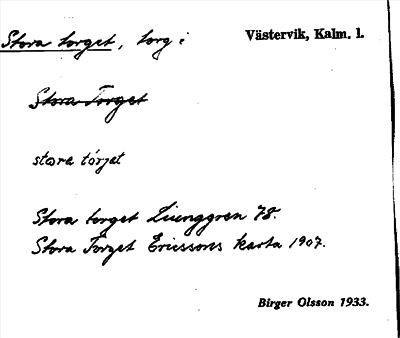 Stora torget, torg i Västervik, Kalm. l.
Stora Torget
stora tórjet
Stora torget Ljunggren 78.
Stora Torget Ericssons karta 1907.
Birger Olsson 1933.